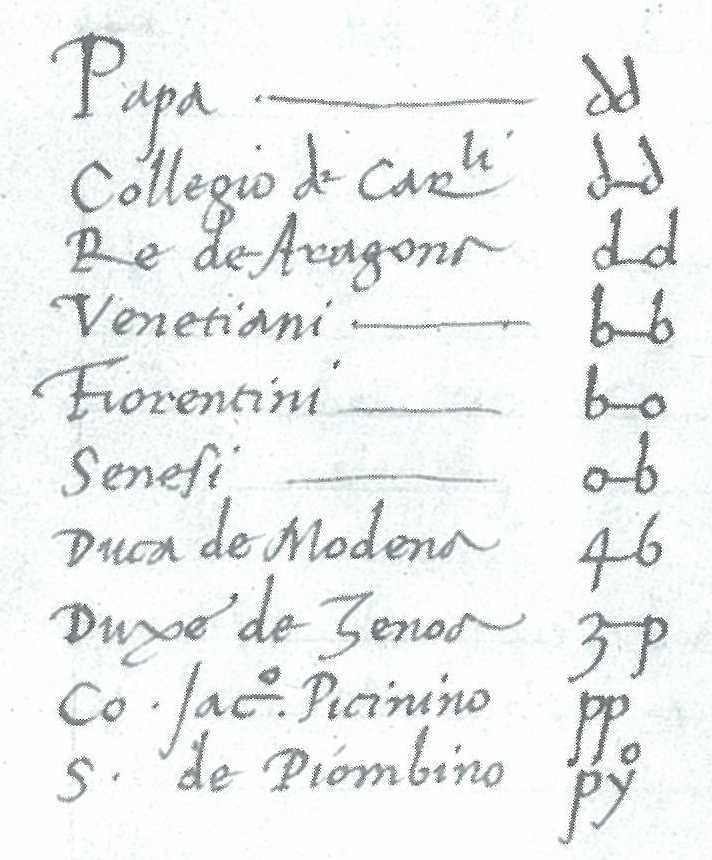 Papa — dd
Collegio de Car.li d-d
Re de Aragona d-d
Venetiani — b-b
Fiorentini — b-o
Senesi — o-b
Duca de Modena 4-b
Duxe de Zenoa 3-p
Co. Jac.o Picinino pp
S. de Piombino